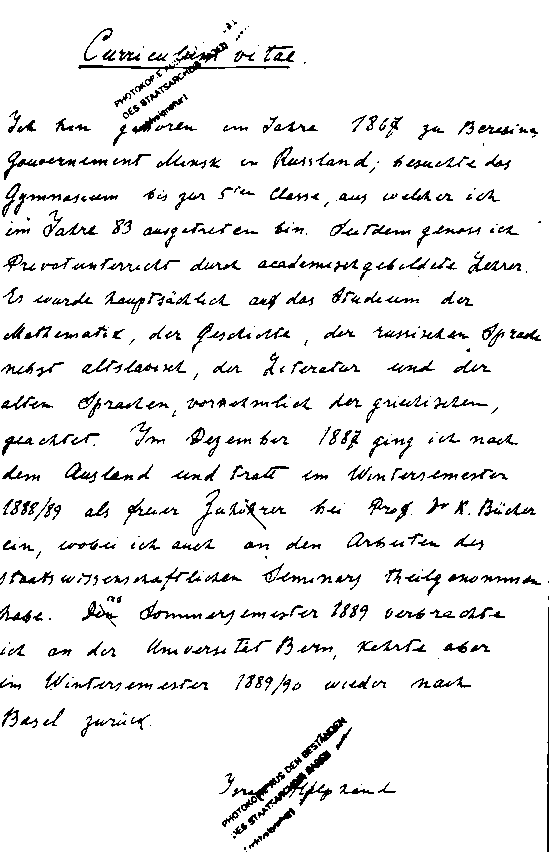 Curriculum vitae.
PHOTOKOPIE AUS
DES STAATSARCHIVS BASEL
Ich bin geboren im Jahre 1867 zu Beresina,
Gouvernement Minsk in Russland; besuchte das
Gymnasium bis zur 5ten Classe, aus welcher ich
im Jahre 83 ausgetreten bin. Seitdem genoss ich
Privatunterricht durch academischgebildete Lehrer.
Es wurde hauptsächlich auf das Studium der
Mathematik, der Geschichte, der russischen Sprache
nebst altslavisch, der Literatur und der
alten Sprachen, vornehmlich der griechischen,
geachtet. Im Dezember 1887 ging ich nach
dem Ausland und tratt im Wintersemester
1888/89 als freier Zuhörer bei Prof. Dr K. Bücher
ein, wobei ich auch an den Arbeiten des
staatswissenschaftlichen Seminars theilgenommen
habe. Das Sommersemester 1889 verbrachte
ich an der Universität Bern, kehrte aber
im Wintersemester 1889/90 wieder nach
Basel zurück.
Helphand
PHOTOKOPIE AUS DEN BESTÄNDEN
DES STAATSARCHIVS BASEL